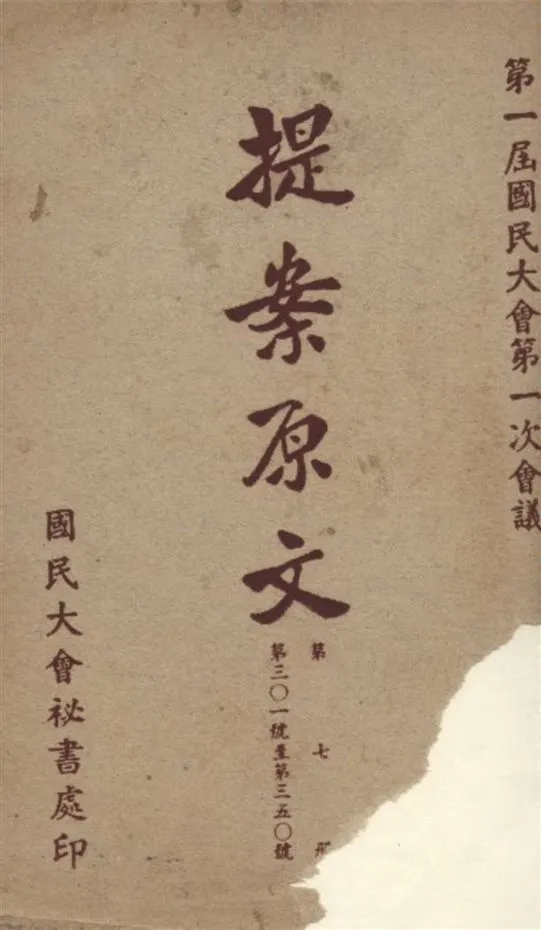 第一屆國民大會第一次會議
提案原文
第七册
第三〇一號至第三五〇號
國民大會祕書處印